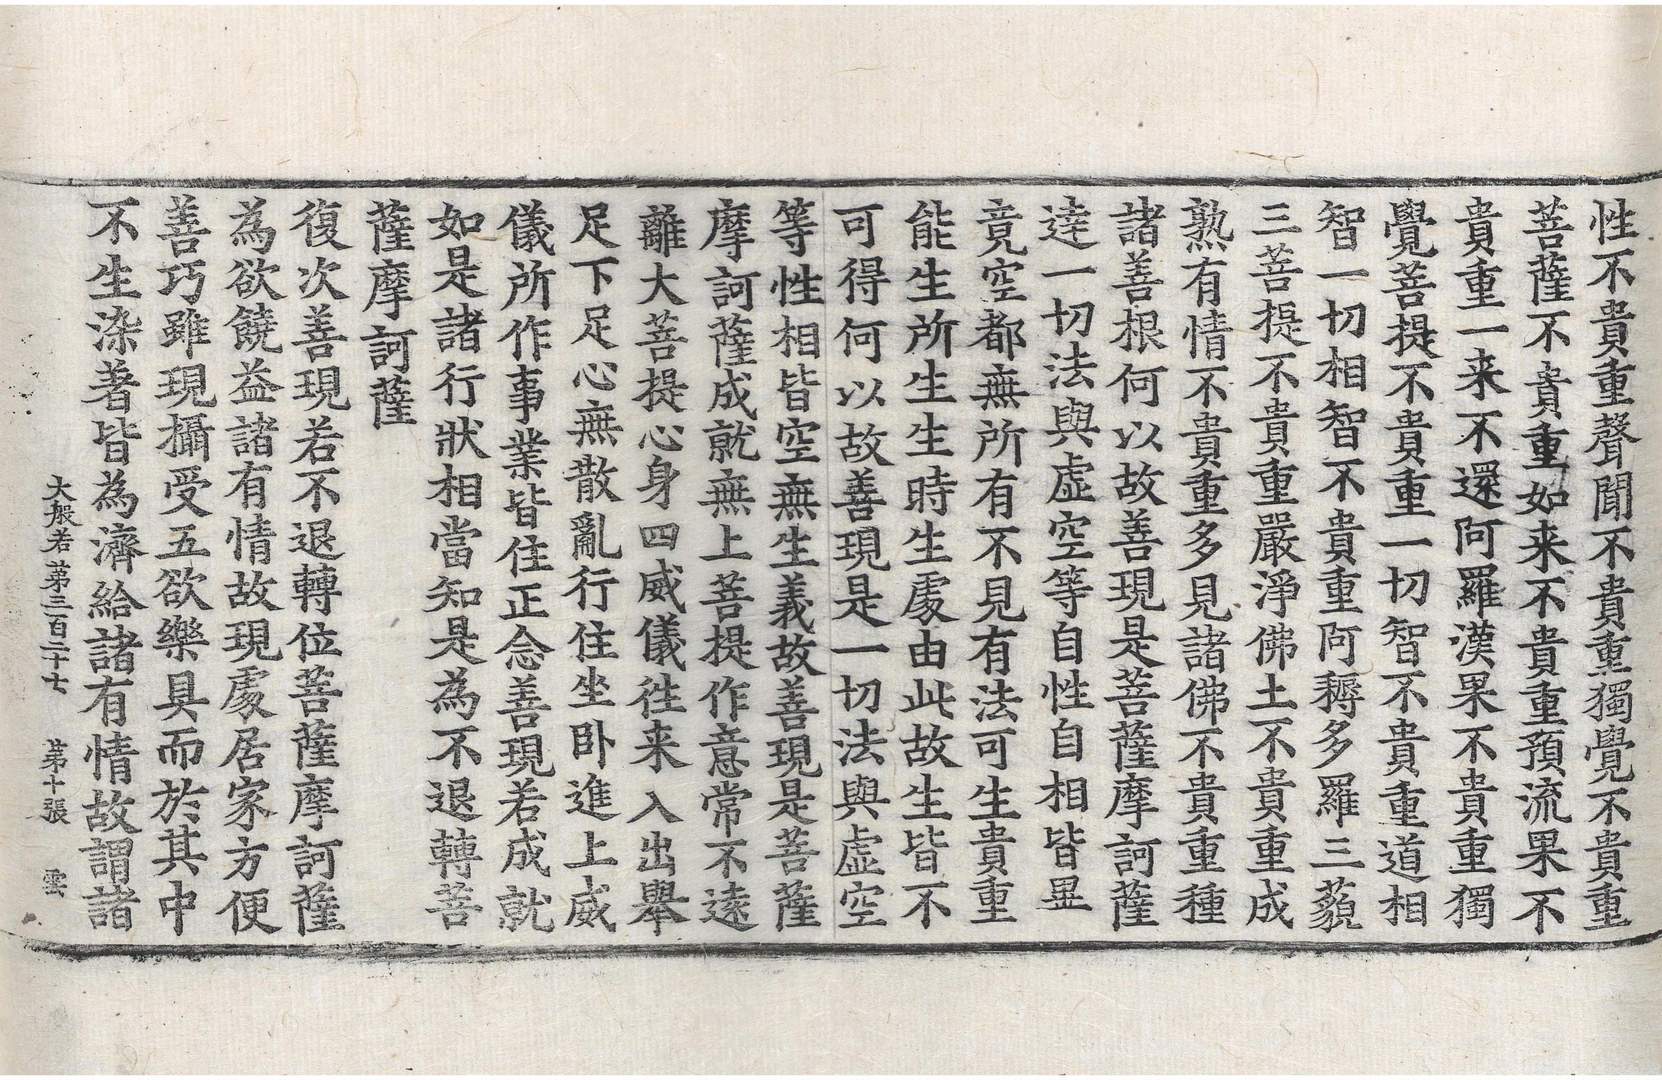 性不貴重聲聞不貴重獨覺不貴重
菩薩不貴重如来不貴重預流果不
貴重一来不還阿羅漢果不貴重獨
覺菩提不貴重一切智不貴重道相
智一切相智不貴重阿耨多羅三藐
三菩提不貴重嚴淨佛土不貴重成
熟有情不貴重多見諸佛不貴重種
諸善根何以故善現是菩薩摩訶薩
達一切法與虛空等自性自相皆畢
竟空都無所有不見有法可生貴重
能生所生生時生處由此故生皆不
可得何以故善現是一切法與虛空
等性相皆空無生義故善現是菩薩
摩訶薩成就無上菩提作意常不遠
離大菩提心身四威儀往来入出舉
足下足心無散亂行住坐卧進上威
儀所作事業皆住正念善現若成就
如是諸行狀相當知是為不退轉菩
薩摩訶薩
復次善現若不退轉位菩薩摩訶薩
為欲饒益諸有情故現處居家方便
善巧雖現攝受五欲樂具而於其中
不生染著皆為濟給諸有情故謂諸
大般若第三百二十七 第十張 雲